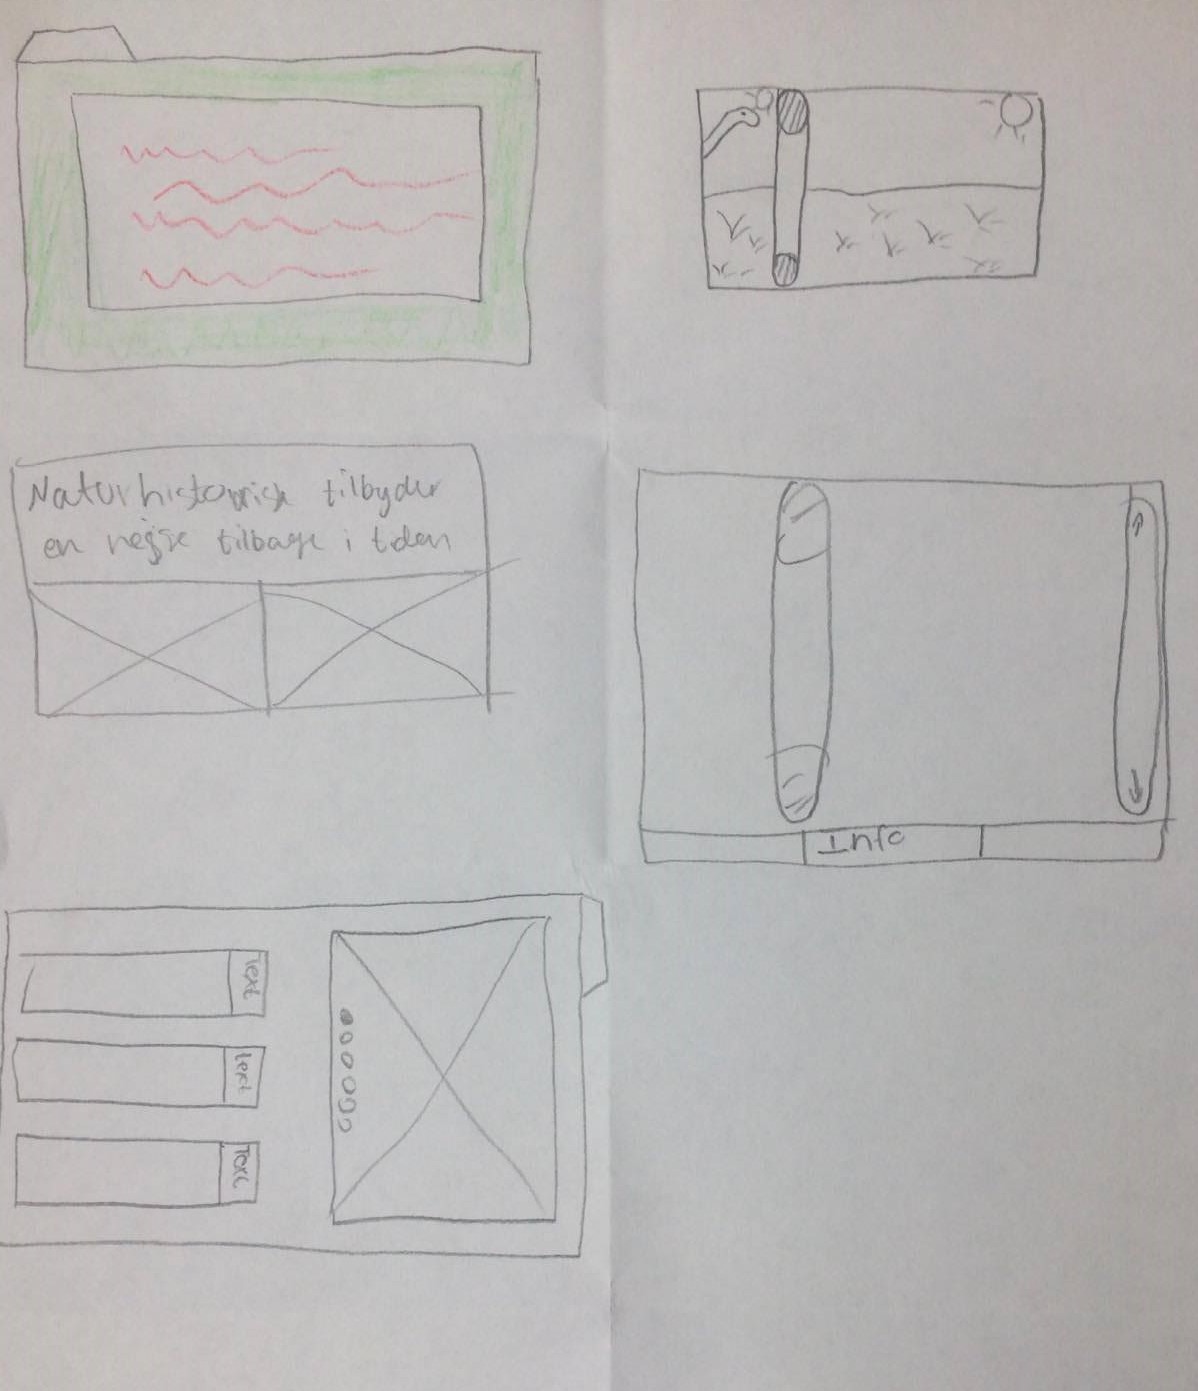 Naturhistorisk tilbyder
en rejse tilbage i tiden
Info
Text
text
Text